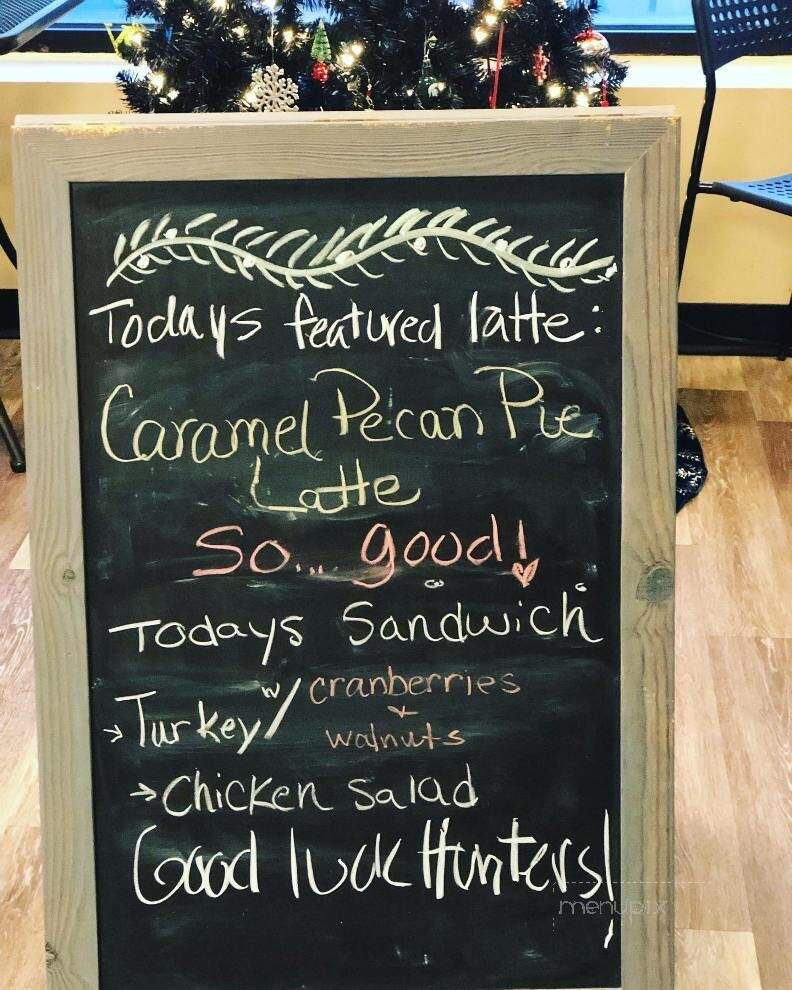 Todays featured latte:
Caramel Pecan Pie
Latte
So... good!
Todays Sandwich
→Turkey w/ cranberries
+
walnuts
→Chicken salad
Good luck Hunters!
menupix